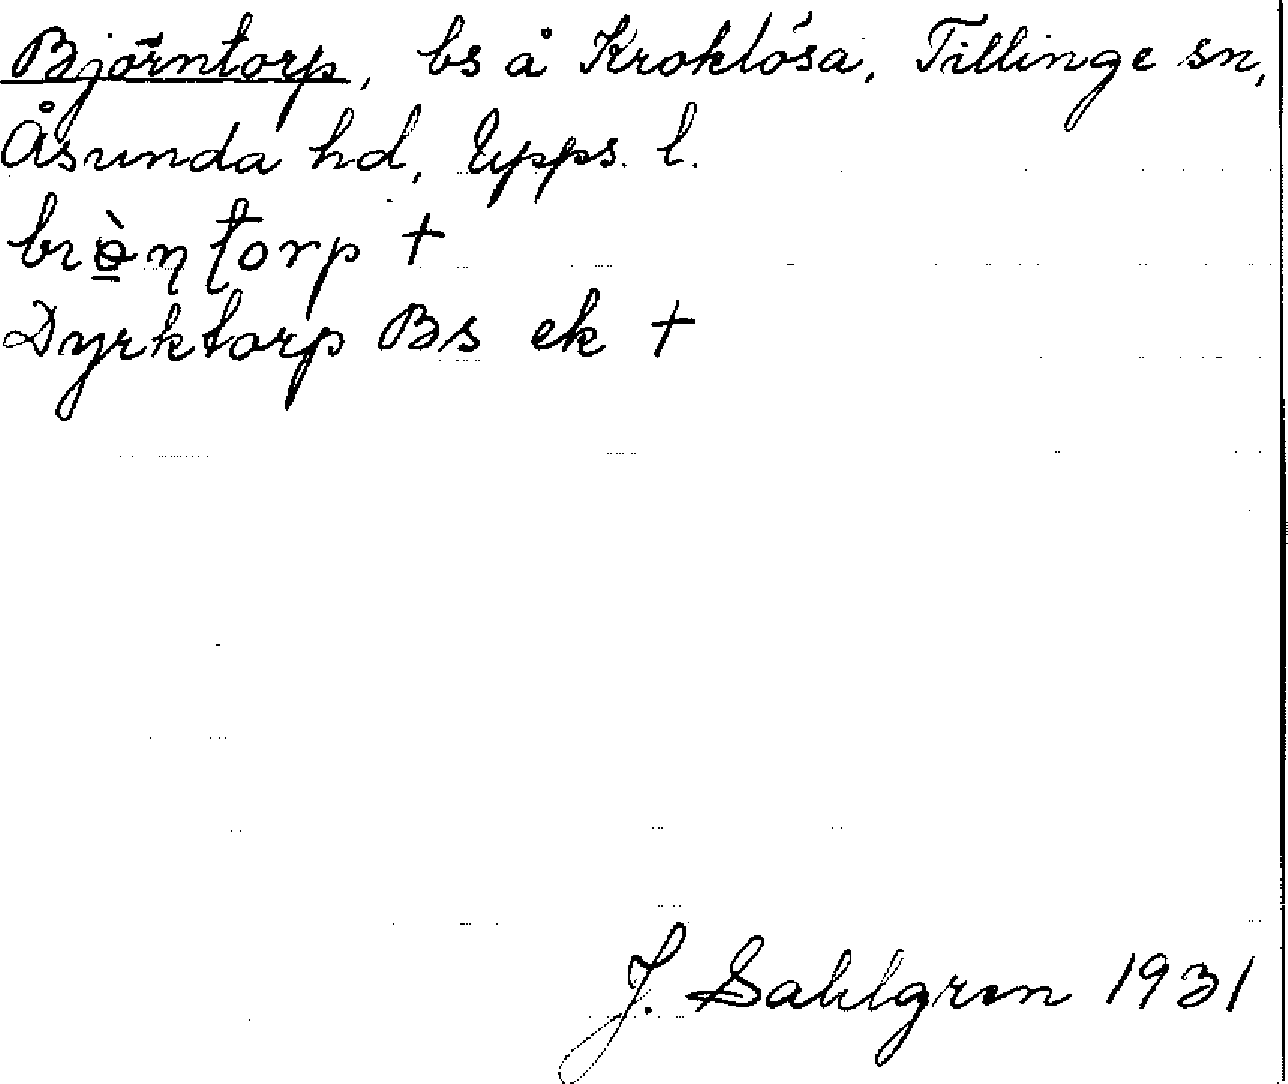 Björntorp, bs å Kroklösa, Tillinge sn,
Åsunda hd, Upps. l.
torp +
Dyrktorp Bs ek +
J. Sahlgren 1931